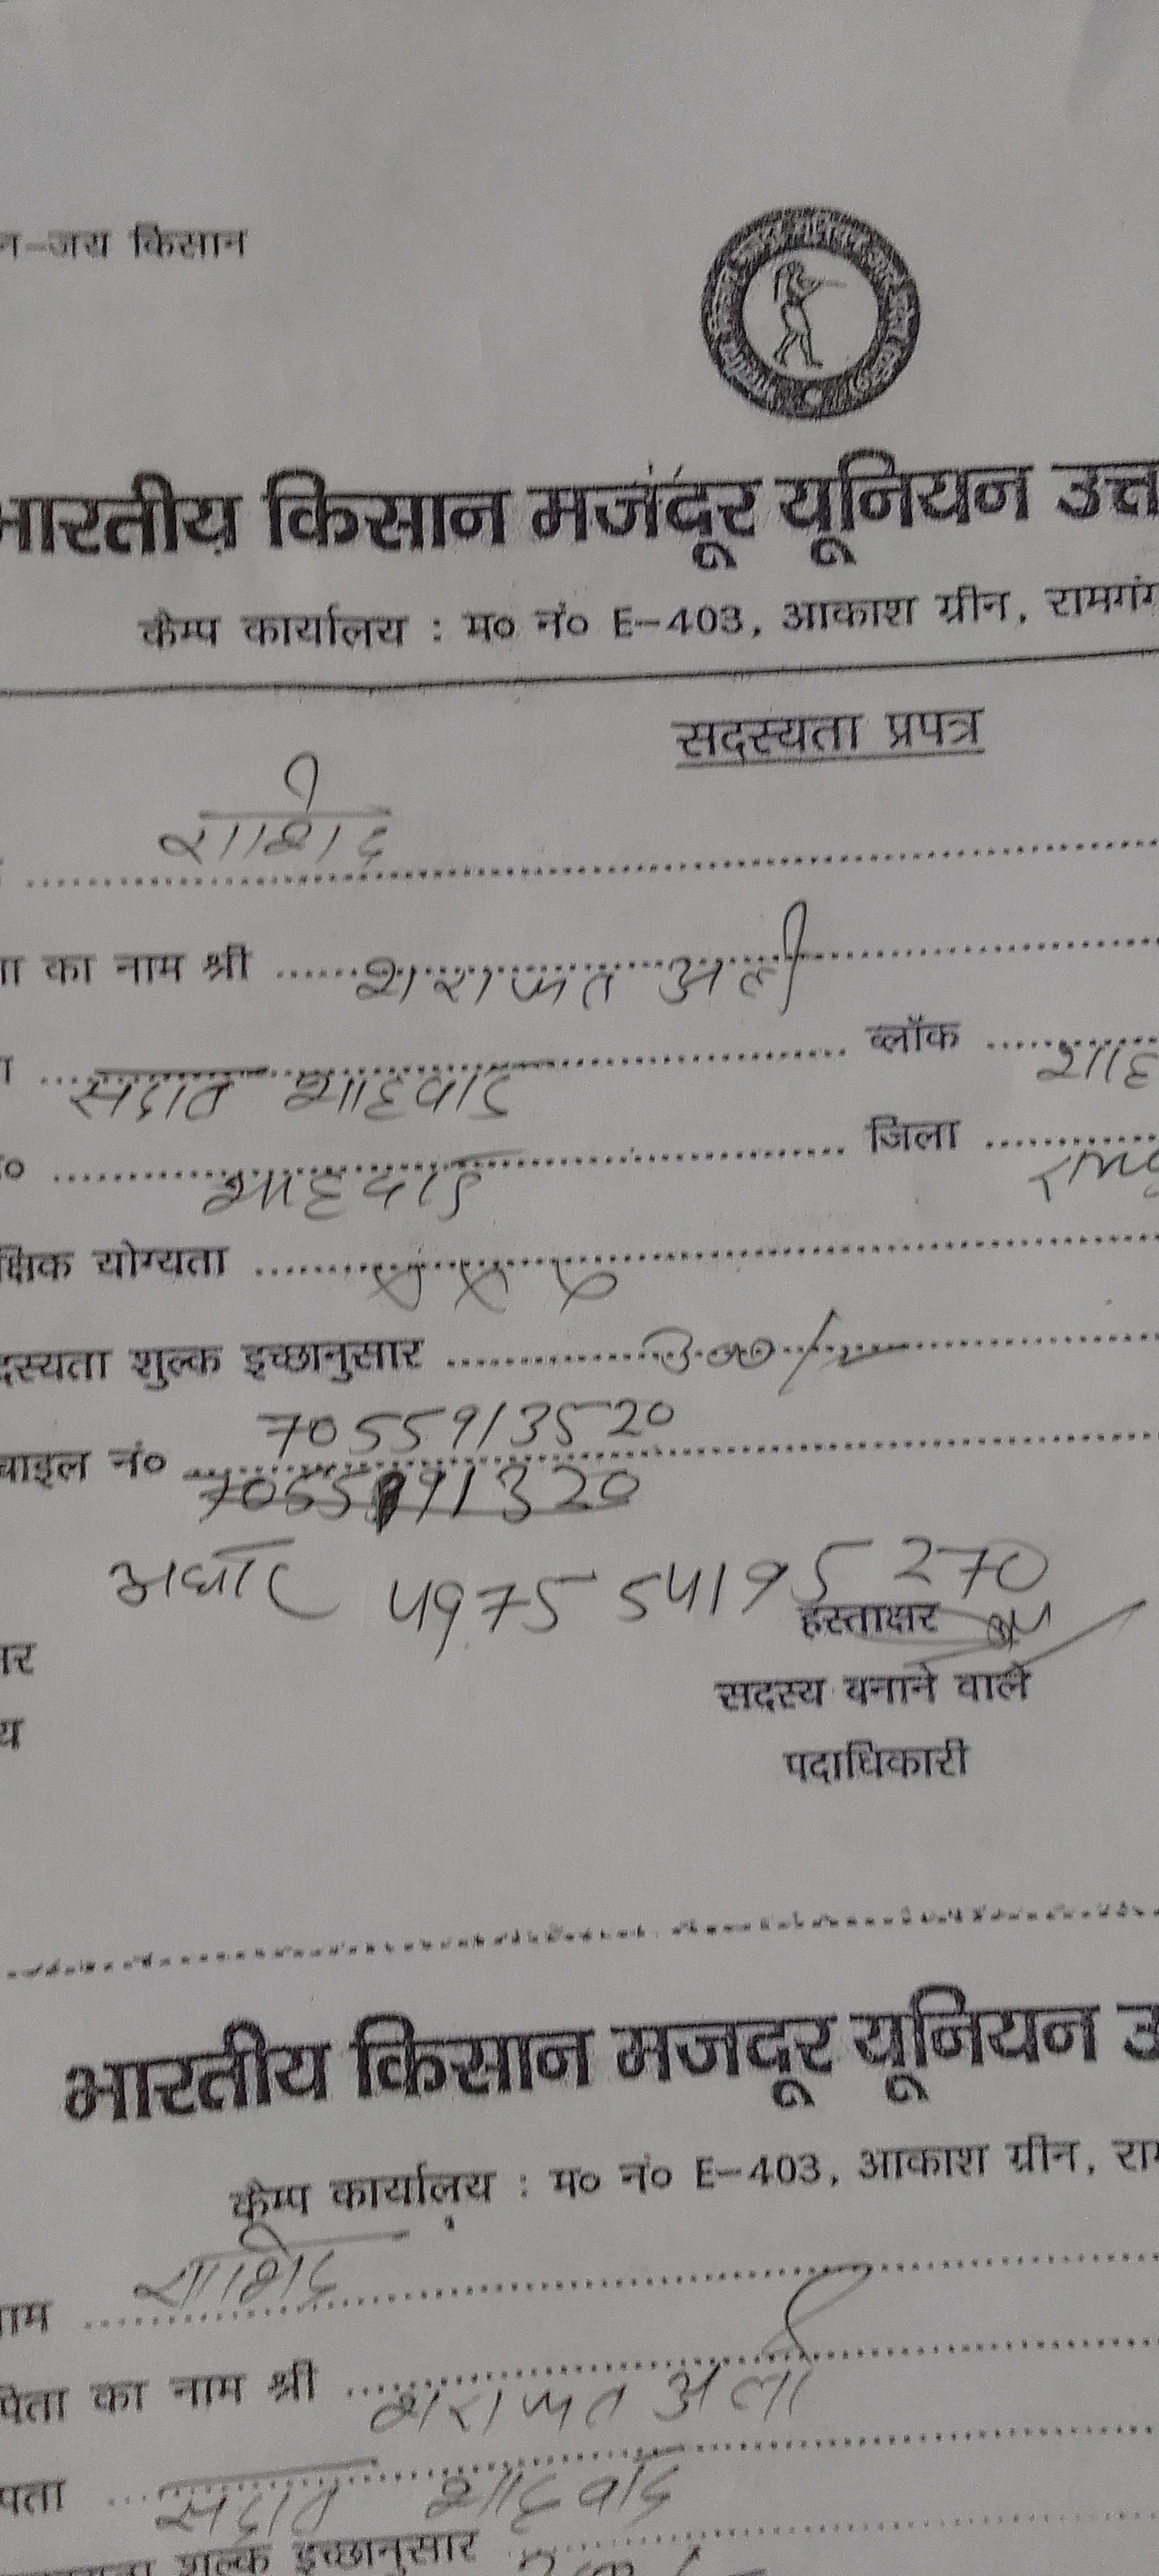 न-जय किसान
भारतीय किसान मजदूर यूनियन उत्त
कैम्प कार्यालय : म० नं० E-403, आकाश ग्रीन, रामगंग
सदस्यता प्रपत्र
ता का नाम श्री शराफत अली
शाहबाद ब्लॉक शाह
शाहबाद जिला रामपु
क्षिक योग्यता × × ×
दस्यता शुल्क इच्छानुसार 300/-
7055913520
बाइल नं०
अधार 4975 54195 270
हस्ताक्षर
ार
सदस्य बनाने वाले
य
पदाधिकारी
भारतीय किसान मजदूर यूनियन उ
कैम्प कार्यालय : म० नं० E-403, आकाश ग्रीन, राम
नाम
पिता का नाम श्री शराफत अली
पता शाहबाद
शुल्क इच्छानुसार